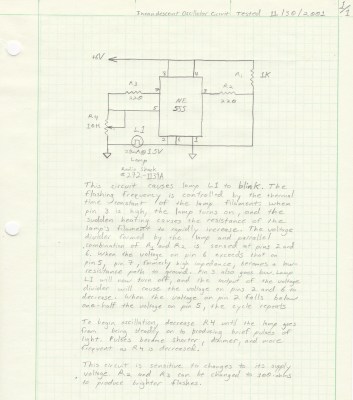 Incandescent Oscillator Circuit Tested 11/30/2001 1/1
+10V
R3
220
NE
555
R2
220
R1
1K
R4
10K
L1
Lamp
Radio Shack
This circuit causes lamp L1 to blink. The
flashing frequency is controlled by the thermal
time constant of the lamp filament. When
pin 3 is high, the lamp turns on, and the
sudden heating causes the resistance of the
lamp's filament to rapidly increase. The voltage
divider formed by the lamp and parallel
combination of R1 and R2 is sensed at pins 2 and
6. When the voltage on pin 6 exceeds that on
pin 5, pin 7, formerly high impedance, becomes a low
resistance path to ground. Pin 3 also goes low. Lamp
L1 will now turn off, and the output of the voltage
divider will cause the voltage on pins 2 and 6 to
decrease. When the voltage on pin 2 falls below
one-half the voltage on pin 5, the cycle repeats
To begin oscillation, decrease R4 until the lamp goes
from being steady on to producing brief pulses of
light. Pulses become shorter, dimmer, and more
frequent as R4 is decreased.
This circuit is sensitive to changes to its supply
voltage. R2 and R3 can be changed to
to produce brighter flashes.